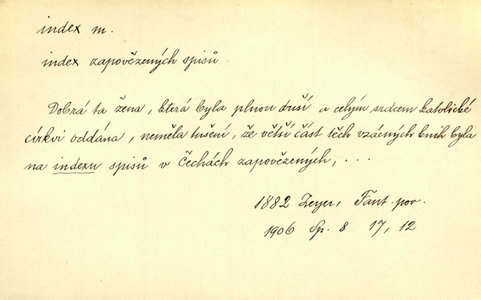 index m.
index zapovězených spisů.
Dobrá ta žena, která byla plnou duší a celým srdcem katolické
církvi oddána, neměla tušení, že větší část těch vzácných knih byla
na indexu spisů v Čechách zapovězených, . . .
1882 Zeyer, Fant. pov.
1906 Sp. 8 17, 12